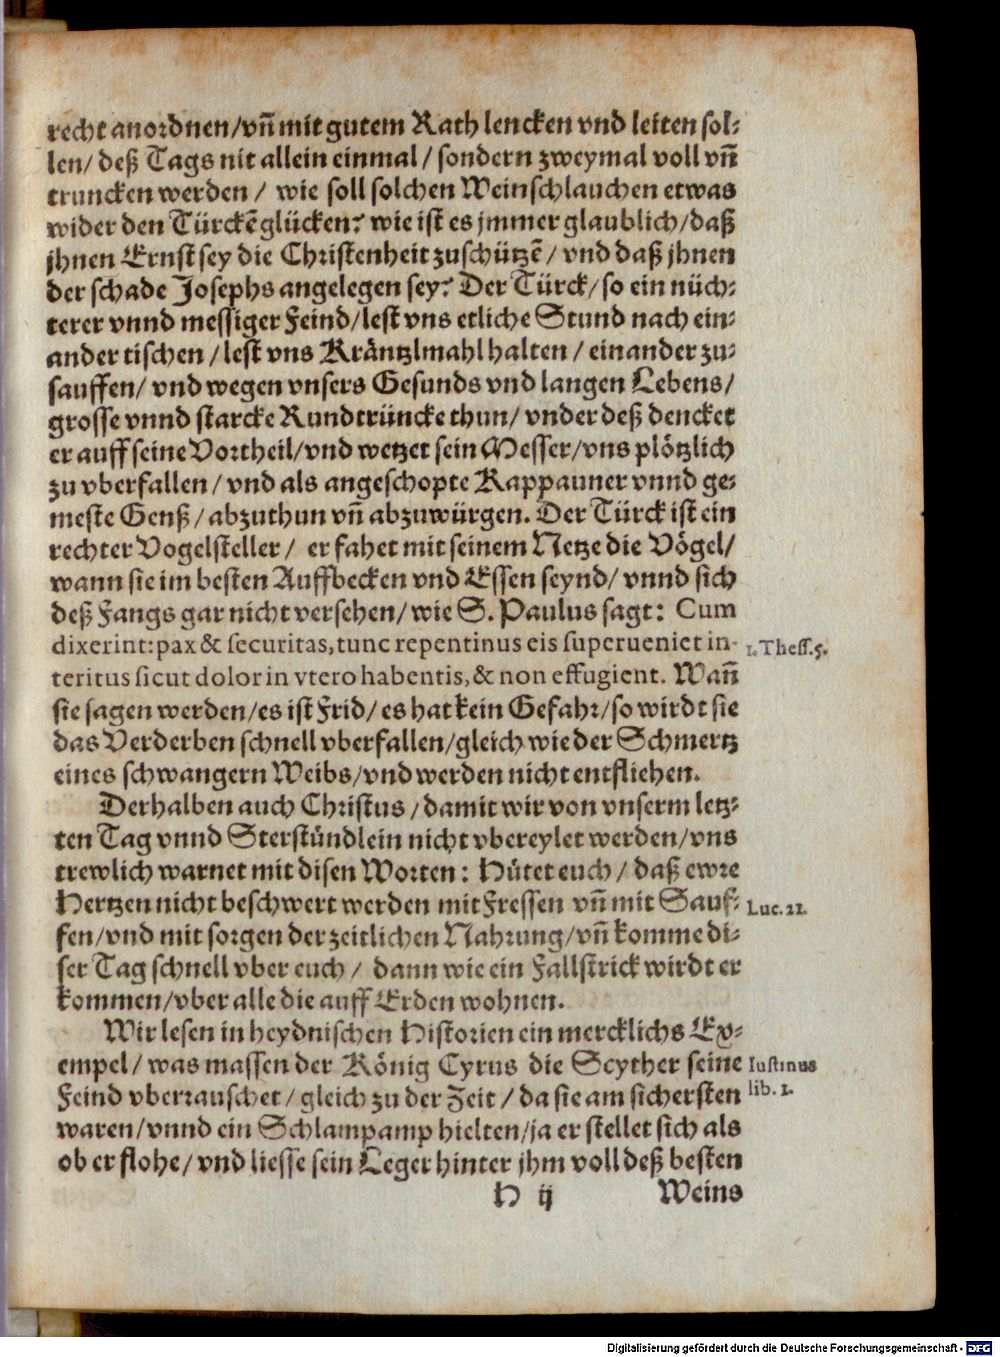 recht anordnen/vñ mit gutem Rath lencken vnd leiten sol-
len/ deß Tags nit allein einmal / sondern zweymal voll vñ
truncken werden / wie soll solchen Weinschlauchen etwas
wider den Türckẽ glücken? wie ist es jmmer glaublich/daß
jhnen Ernst sey die Christenheit zuschützẽ / vnd daß jhnen
der schade Josephs angelegen sey? Der Türck/ so ein nüch-
terer vnnd messiger Feind/lest vns etliche Stund nach ein-
ander tischen /lest vns Kräntzlmahl halten / einander zu-
sauffen/ vnd wegen vnsers Gesunds vnd langen Lebens/
grosse vnnd starcke Rundtrüncke thun/ vnder deß dencket
er auff seine Vortheil/vnd wetzet sein Messer/vns plötzlich
zu vberfallen / vnd als angeschopte Kappauner vnnd ge-
meste Genß / abzuthun vñ abzuwürgen. Der Türck ist ein
rechter Vogelsteller / er fahet mit seinem Netze die Vögel/
wann sie im besten Auffbecken vnd Essen seynd/ vnnd sich
deß Fangs gar nicht versehen/ wie S. Paulus sagt: Cum
dixerint: pax & securitas, tunc repentinus eis superueniet in- 1. Thess. 5.
teritus sicut dolor in vtero habentis, & non effugient. Wañ
sie sagen werden/es ist Frid/ es hat kein Gefahr/so wirdt sie
das Verderben schnell vberfallen/gleich wie der Schmertz
eines schwangern Weibs/vnd werden nicht entfliehen.
Derhalben auch Christus / damit wir von vnserm letz-
ten Tag vnnd Sterstündlein nicht vbereylet werden/vns
trewlich warnet mit disen Worten: Hütet euch / daß ewre
Hertzen nicht beschwert werden mit Fressen vñ mit Sauf- Luc. 21.
fen/vnd mit sorgen der zeitlichen Nahrung/vñ komme di-
ser Tag schnell vber euch / dann wie ein Fallstrick wirdt er
kommen/vber alle die auff Erden wohnen.
Wir lesen in heydnischen Historien ein mercklichs Ex-
empel / was massen der König Cyrus die Scyther seine Iustinus
Feind vberrauschet / gleich zu der Zeit / da sie am sichersten lib. 1.
waren/vnnd ein Schlampamp hielten/ja er stellet sich als
ob er flohe/ vnd liesse sein Leger hinter jhm voll deß besten
H ij Weins
Digitalisierung gefördert durch die Deutsche Forschungsgemeinschaft - DFG